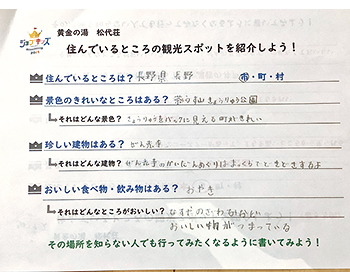 ジョブキッズ
黄金の湯 松代荘
住んでいるところの観光スポットを紹介しよう！
住んでいるところは？ 長野県 長野 市・町・村
景色のきれいなところはある？ 茶臼山きょうりゅう公園
それはどんな景色？ きょうりゅうをバックに見える町がきれい
珍しい建物はある？ ぜん光寺
それはどんな建物？ ぜん光寺のかいだんめぐりはまっくらで
おいしい食べ物・飲み物はある？ おやき
それはどんなところがおいしい？ なす
おいしい物がつまっている
その場所を知らない人でも行ってみたくなるように書いてみよう！